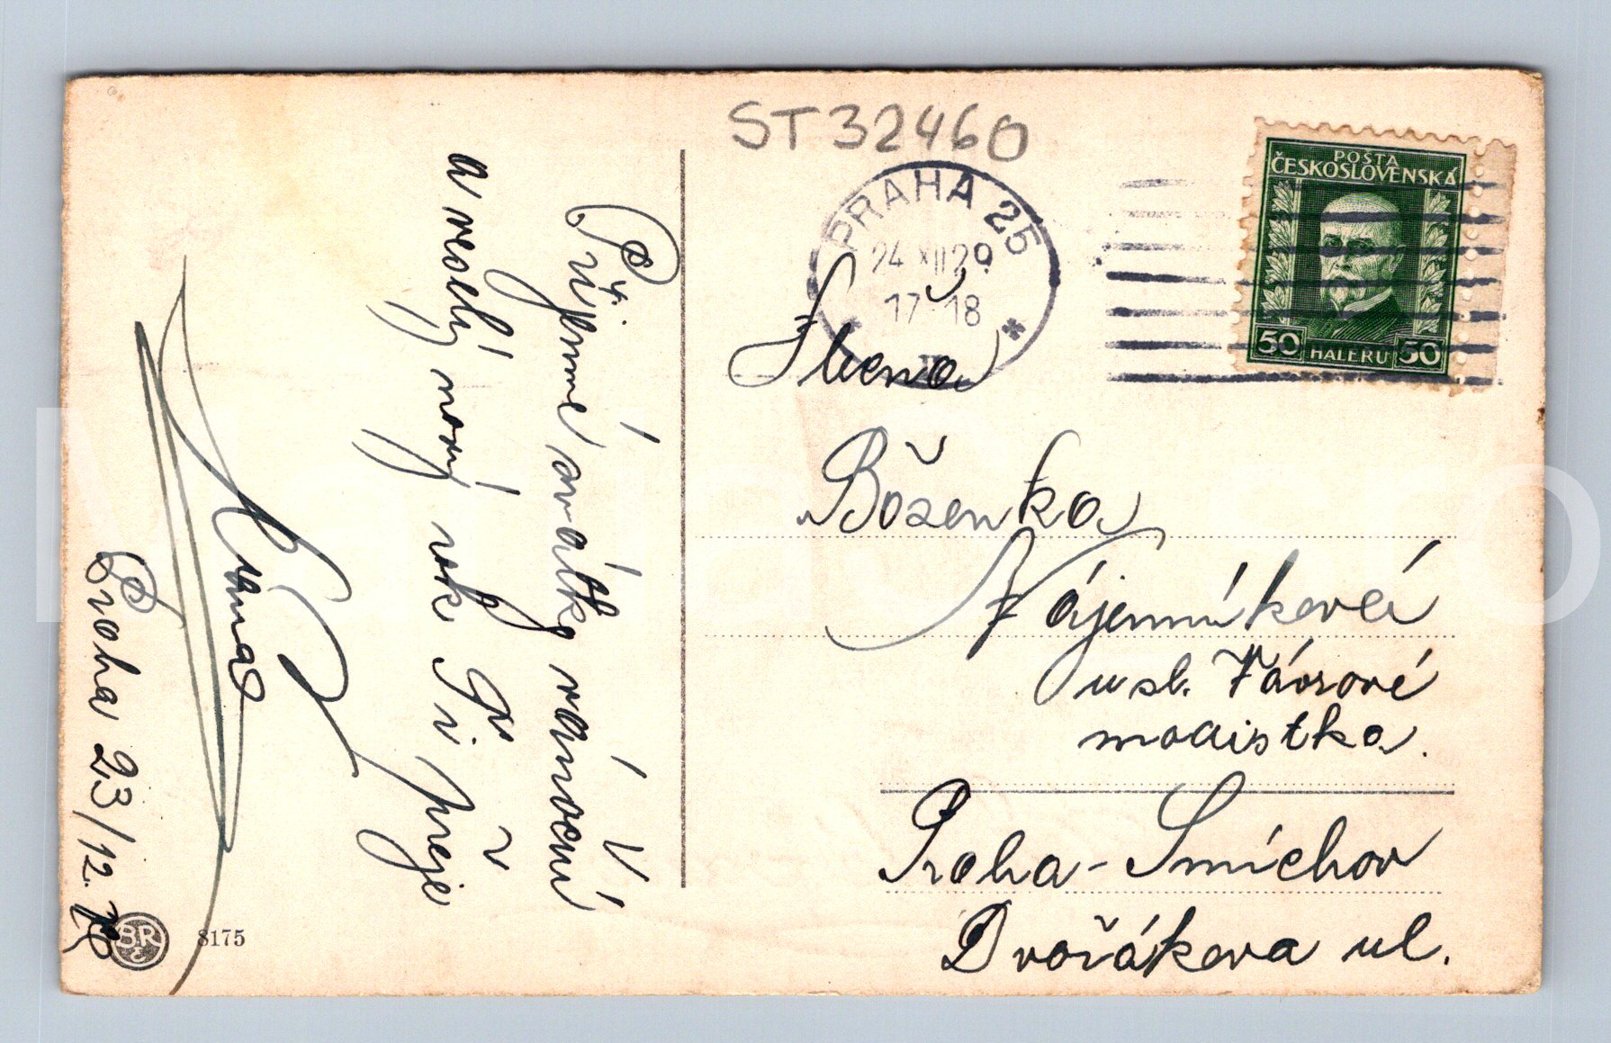 ST32460
PRAHA 25
24 XII 29
17-18
POŠTA
ČESKOSLOVENSKÁ
50 HALÉRU 50
Slečna
Boženka
Nájemníková
u sl. Vávrové
modistka.
Praha-Smíchov
Dvořákova ul.
Příjemné svátky vánoční
a veselý nový rok Ti přeje
Praha 23/12.
BR
8175